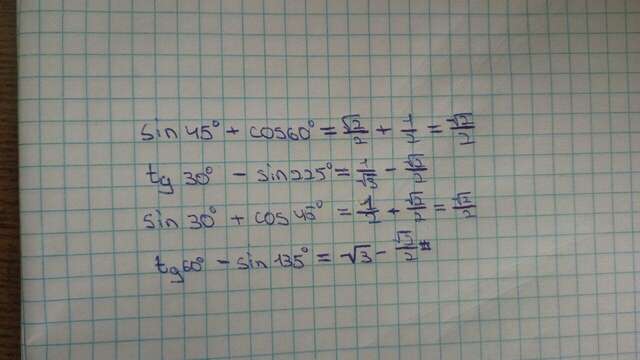 sin 45° + cos60° = √2/2 + 1/2 = √2/2
tg 30° - sin225° = 1/√3 - √2/2
sin 30° + cos45° = 1/2 + √2/2 = √2/2
tg60° - sin 135° = √3 - √3/2